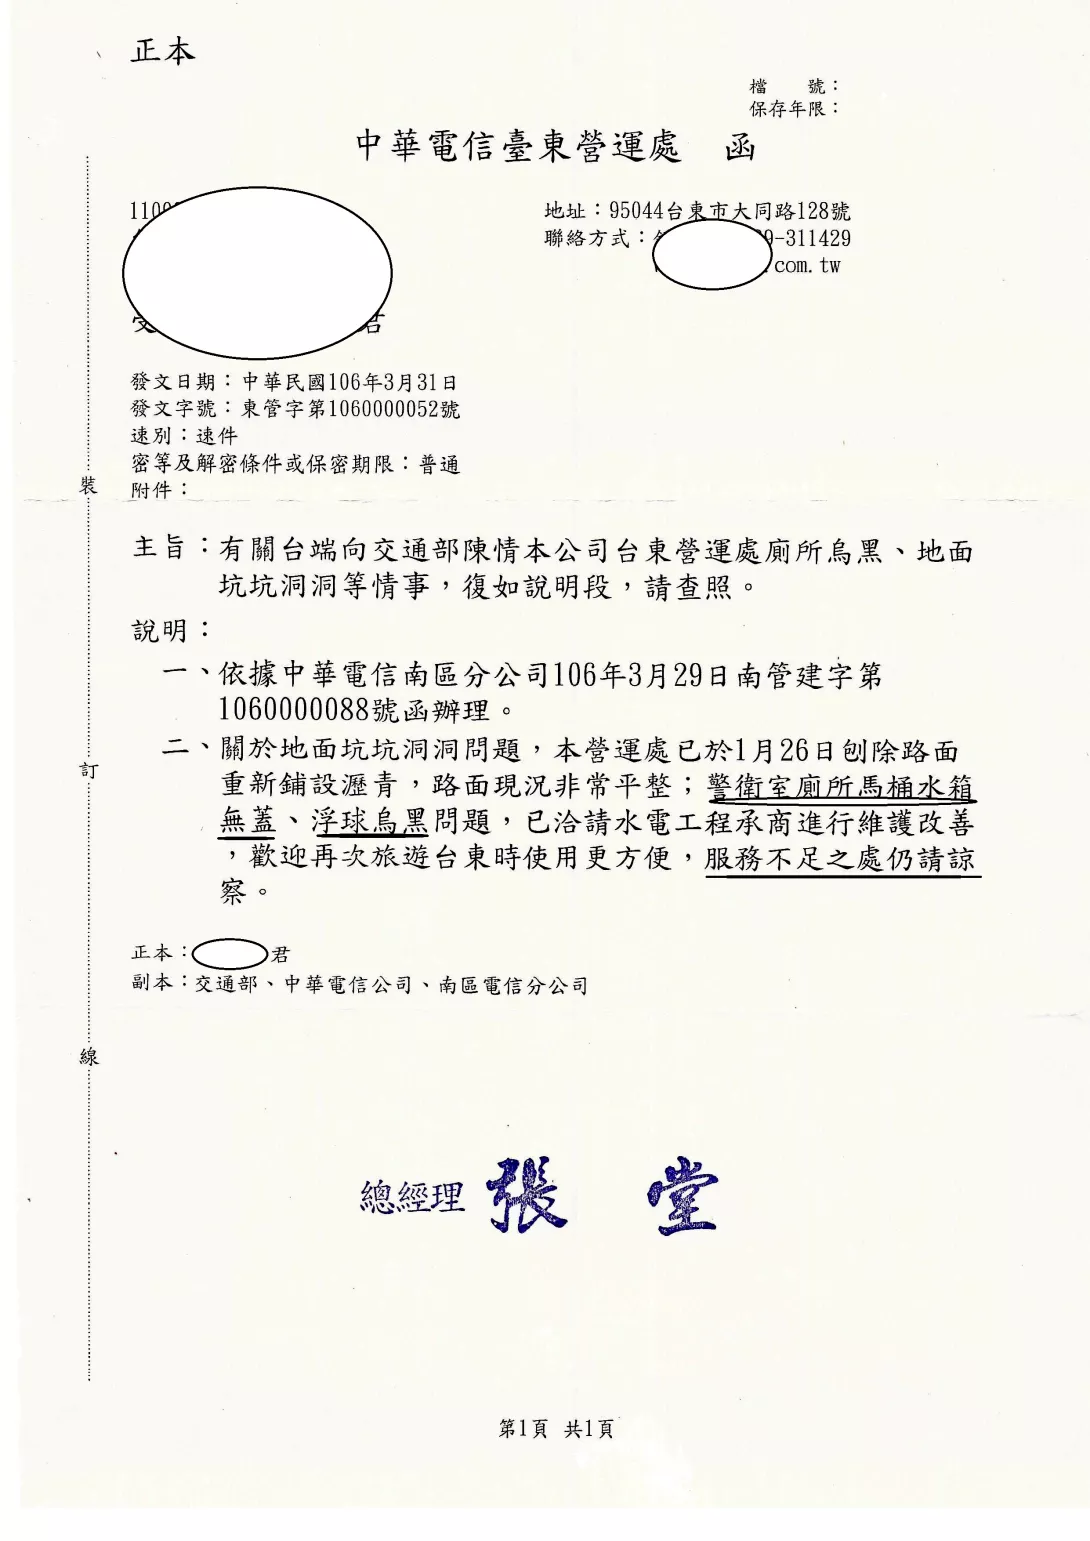 正本
檔　　號：
保存年限：
中華電信臺東營運處　函
地址：95044台東市大同路128號
聯絡方式：
9-311429
.com.tw
君
發文日期：中華民國106年3月31日
發文字號：東管字第1060000052號
速別：速件
密等及解密條件或保密期限：普通
附件：
主旨：有關台端向交通部陳情本公司台東營運處廁所烏黑、地面
坑坑洞洞等情事，復如說明段，請查照。
說明：
一、依據中華電信南區分公司106年3月29日南管建字第
1060000088號函辦理。
二、關於地面坑坑洞洞問題，本營運處已於1月26日刨除路面
重新鋪設瀝青，路面現況非常平整；警衛室廁所馬桶水箱
無蓋、浮球烏黑問題，已洽請水電工程承商進行維護改善
，歡迎再次旅遊台東時使用更方便，服務不足之處仍請諒
察。
正本：
君
副本：交通部、中華電信公司、南區電信分公司
總經理 張　堂
第1頁 共1頁
裝
訂
線